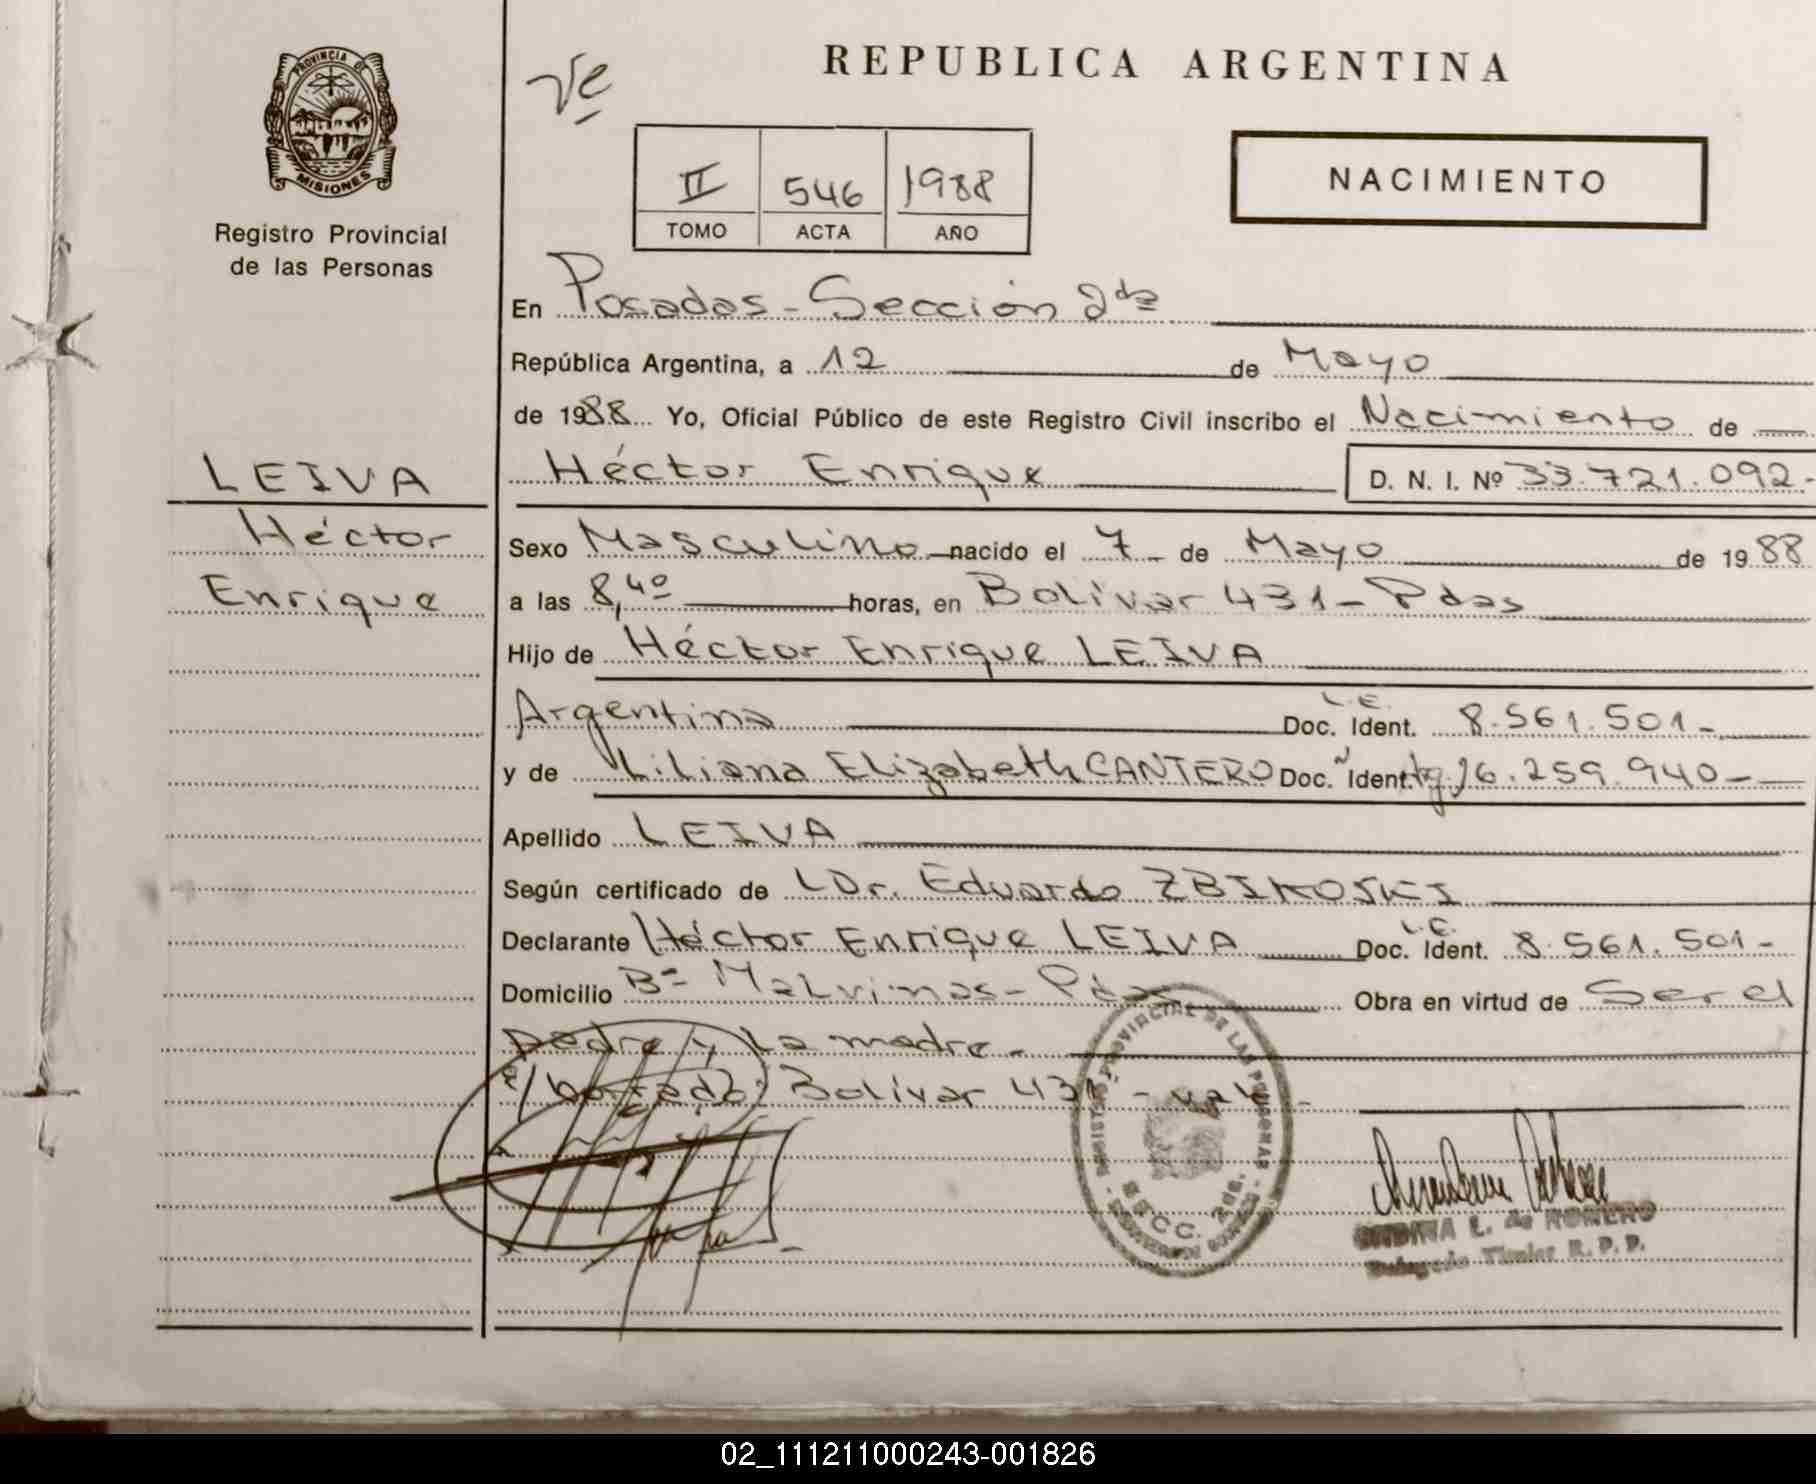 PROVINCIA DE
MISIONES
Registro Provincial
de las Personas
LEIVA
Héctor
Enrique
REPUBLICA ARGENTINA
II 546 1988
TOMO ACTA AÑO
NACIMIENTO
En Posadas - Sección 2da
República Argentina, a 12 de Mayo
de 1988 Yo, Oficial Público de este Registro Civil inscribo el Nacimiento de
Héctor Enrique D. N. I. Nº 33.721.092-
Sexo Masculino nacido el 7 de Mayo de 1988
a las 8,40 horas, en Bolívar 431 - Pdas
Hijo de Héctor Enrique LEIVA
L.E.
Argentina Doc. Ident. 8.561.501-
y de Liliana Elizabeth CANTERO Doc. Ident. 16.259.940-
Apellido LEIVA
Según certificado de Dr. Eduardo ZBIKOSKI
L.E.
Declarante Héctor Enrique LEIVA Doc. Ident. 8.561.501-
Domicilio Bº Malvinas - Pdas Obra en virtud de Ser el
padre y la madre -
borrado: Bolívar 431 - vale -
REGISTRO PROVINCIAL DE LAS PERSONAS
SECC. 2da.
ONDINA L. de ROMERO
Delegado Titular R. P. P.
02_111211000243-001826